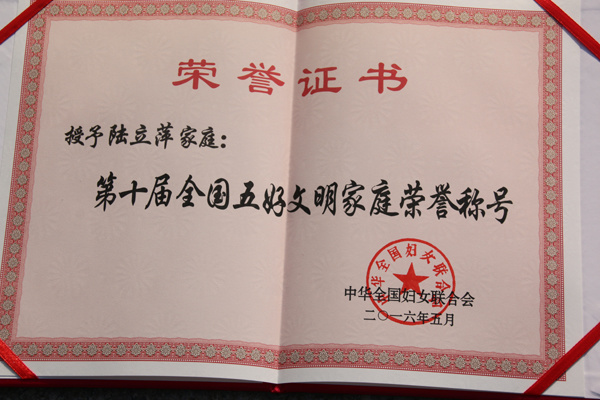 荣誉证书
授予陆立萍家庭：
第十届全国五好文明家庭荣誉称号
中华全国妇女联合会
中华全国妇女联合会
二〇一六年五月